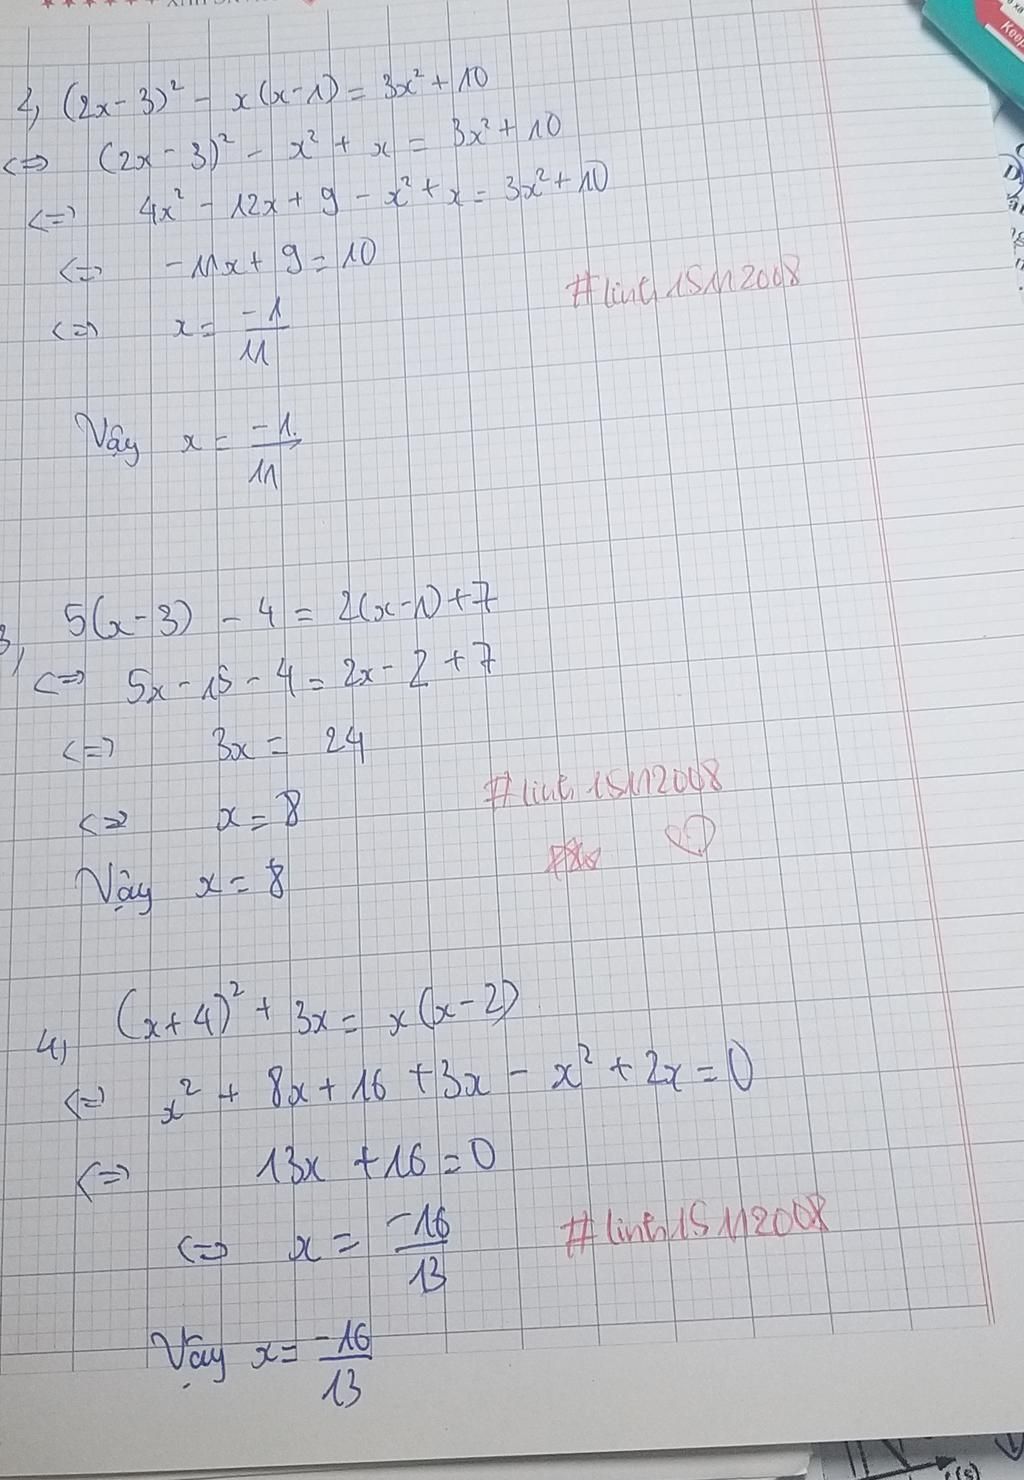 2, (2x-3)² - x(x-1) = 3x² + 10
<=> (2x-3)² - x² + x = 3x² + 10
<=> 4x² - 12x + 9 - x² + x = 3x² + 10
<=> -11x + 9 = 10
#linh15112008
<=> x = -1/11
Vậy x = -1/11
3, 5(x-3) - 4 = 2(x-1) + 7
<=> 5x - 15 - 4 = 2x - 2 + 7
<=> 3x = 24
#linh15112008
<=> x = 8
Vậy x = 8
4, (x+4)² + 3x = x(x-2)
<=> x² + 8x + 16 + 3x - x² + 2x = 0
<=> 13x + 16 = 0
<=> x = -16/13
#linh15112008
Vậy x = -16/13